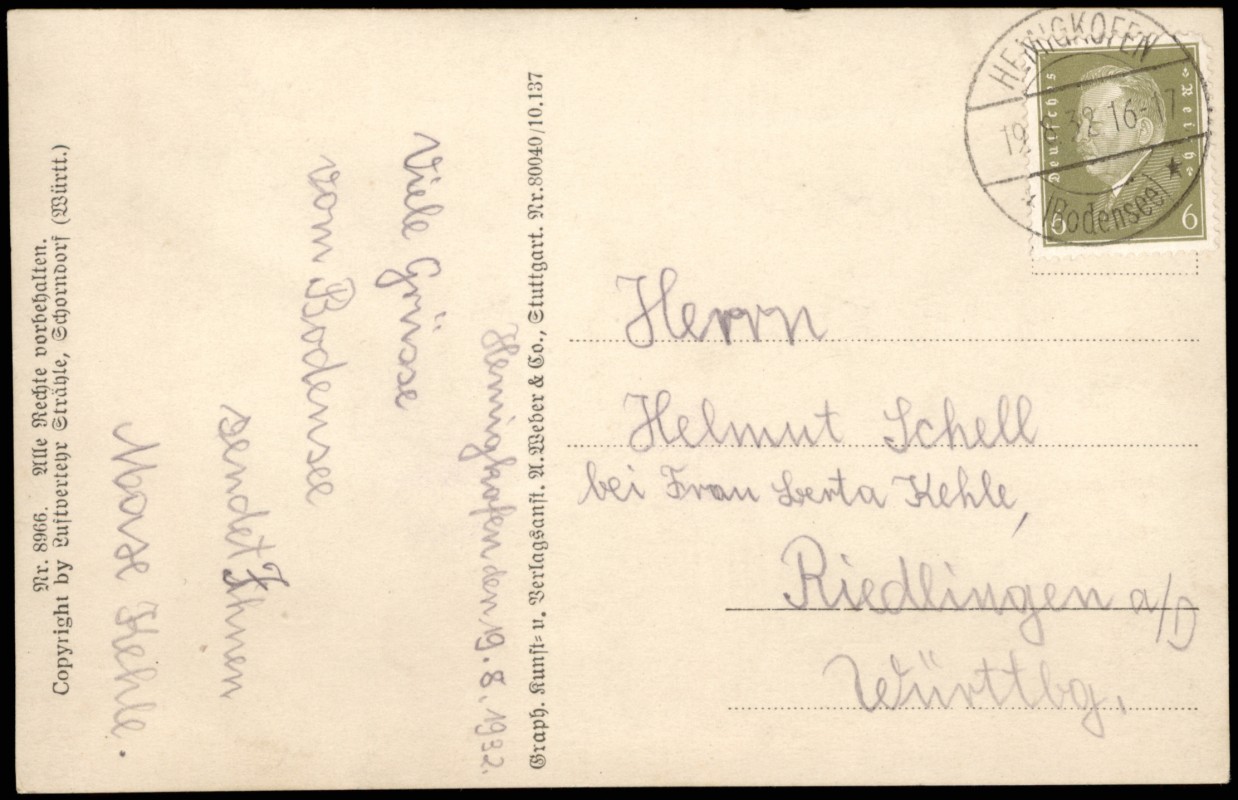 Nr. 8966. Alle Rechte vorbehalten.
Copyright by Luftverkehr Strähle, Schorndorf (Württ.)
Hemigkofen den 19. 8. 1932.
Viele Grüsse
vom Bodensee
sendet Ihnen
Max Kehle.
Graph. Kunst- u. Verlagsanst. A. Weber & Co., Stuttgart. Nr. 80040/10.137
HEMIGKOFEN
19.8.32 16-17
(Bodensee)
Deutsches Reich
6 6
Herrn
Helmut Schell
bei Frau Berta Kehle,
Riedlingen a/D
Württbg.